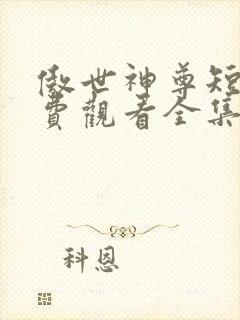 傲世神尊短
費觀看全集
科恩